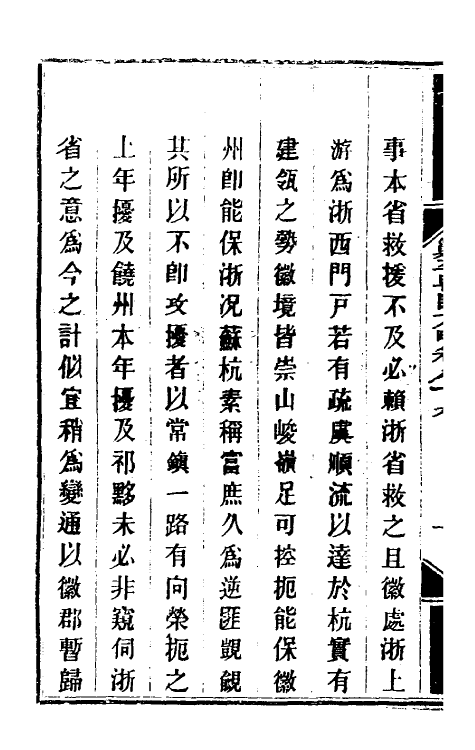 事本省救援不及必賴浙省救之且徽處浙上
游爲浙西門戸若有疏虞順流以達於杭實有
建瓴之勢徽境皆崇山峻嶺足可控扼能保徽
州卽能保浙况蘇杭素稱富庶久爲逆匪覬覦
其所以不卽攻擾者以常鎮一路有向榮扼之
上年擾及饒州本年擾及祁黟未必非窺伺浙
省之意爲今之計似宜稍爲變通以徽郡暫歸